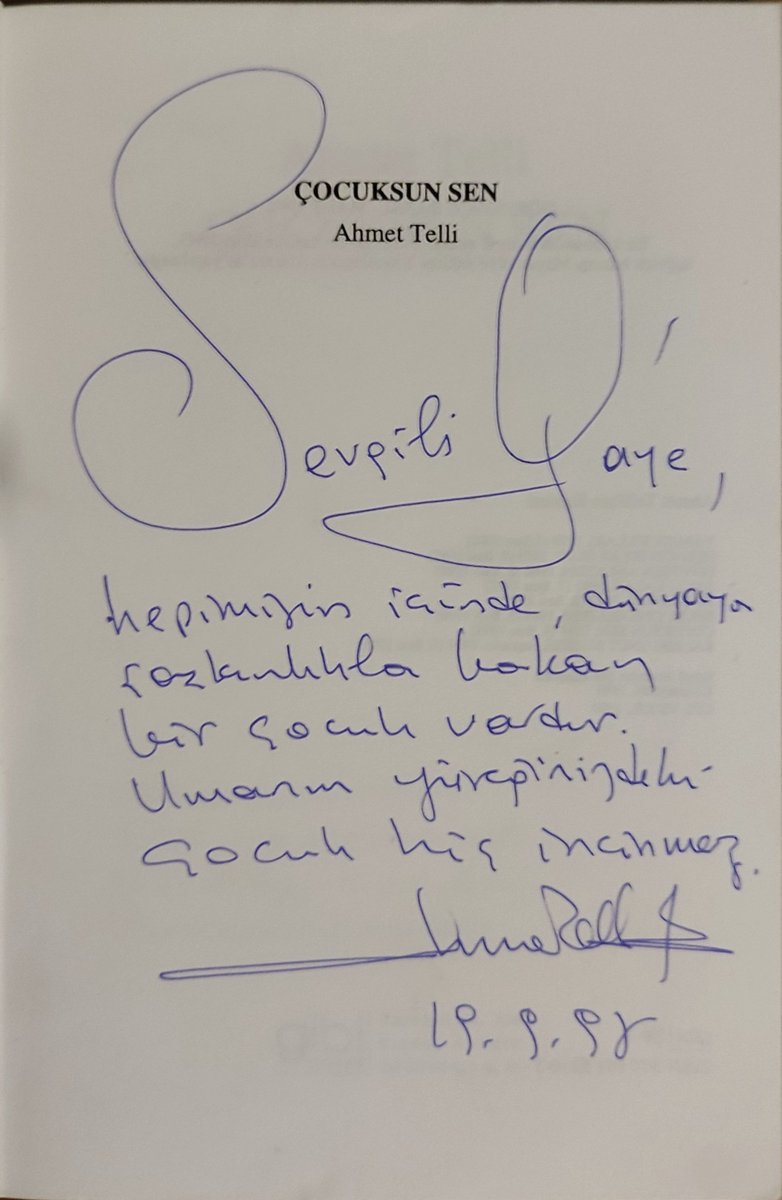 ÇOCUKSUN SEN
Ahmet Telli
Sevgili Gaye,
hepimizin içinde, dünyaya
şaşkınlıkla bakan
bir çocuk vardır.
Umarım yüreğinizdeki
çocuk hiç incinmez.
19.9.98